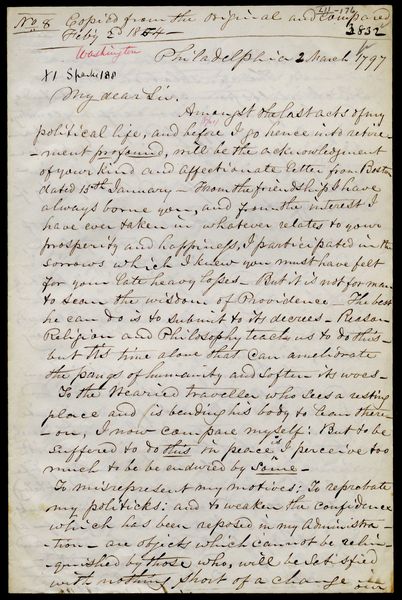 No 8 Copied from the Original and Compared
Feby 2d 1854
III-176
3832
Washington
Philadelphia 2 March 1797
XI Sparks 188
My dear Sir,
Amongst the last acts of my
political life, and before I go hence into retire
-ment profound, will be the acknowledgment
of your kind and affectionate letter from Boston
dated 15th January - From the friendship I have
always borne you, and from the interest I
have ever taken in whatever relates to your
prosperity and happiness, I participated in the
sorrows which I knew you must have felt
for your late heavy losses - But it is not for man
to scan the wisdom of Providence - The best
he can do is to submit to its decrees - Reason
Religion and Philosophy teach us to do this -
but 'tis time alone that can ameliorate
the pangs of humanity and soften its woes -
To the Wearied traveller who sees a resting
place and is bending his body to lean there-
-on, I now compare myself: But to be
suffered to do this in peace, is I perceive too
much to be endured by some -
To misrepresent my motives; To reprobate
my politicks: and to weaken the confidence
which has been reposed in my Administra-
-tion - are objects which cannot be relin-
-quished by those who, will be satisfied
with nothing short of a change in our